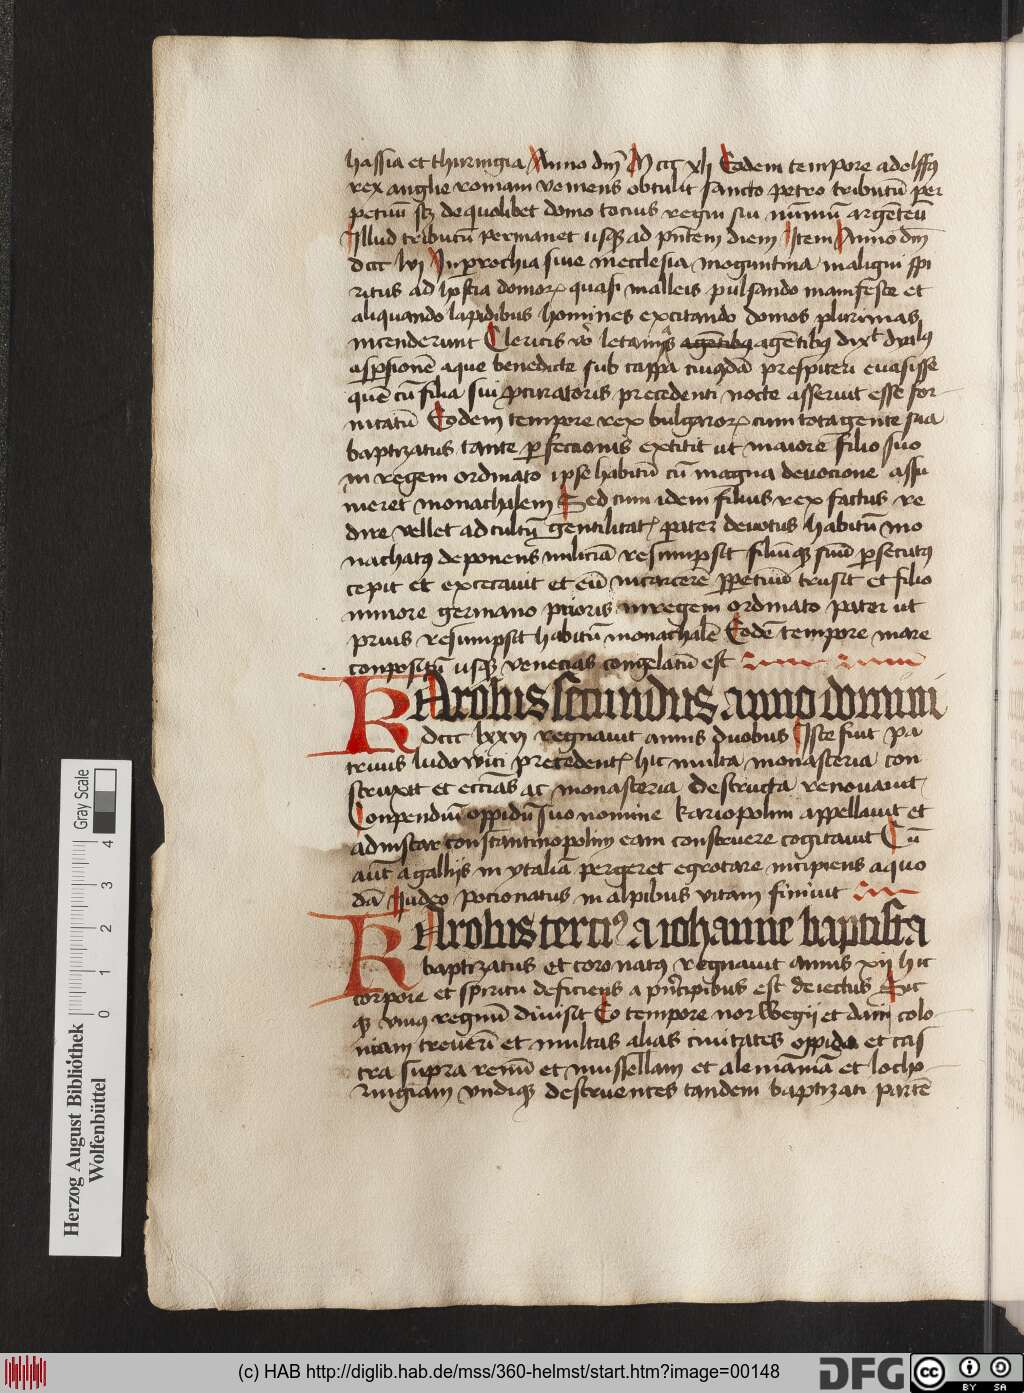 hassia et thuringia Anno dm̄ M ccc xlj Eodem tempore adelffꝰ
rex anglie romam veniens obtulit sancto petro tributū per
petuū scꝫ de quolibet domo tocius regni sui nūmū argēteū
Illud tributū permanet usqꝫ ad pn̄tem diem Item Anno dm̄
dccc lvj In prochia siue in ecclesia moguntina maligni spi
ritus ad hostia domoꝝ quasi malleis pulsando manifeste et
aliquando lapidibus homines excitando domos plurimas
incenderunt Clericis v̊o letanijs agētibꝫ dixͭ dyabꝰ
aspsionē aque benedicte sub cappa cuiꝰdā prespiteri euasisse
quē cū filia sui p̱curatoris precedenti nocte asseruit esse for
nicatū Eodem tempore rex bulgaroꝝ cum tota gente sua
baptizatus tante ꝑfectionis extitit ut maiore filio suo
in regem ordinato ipse habitū cū magna deuocione assu
meret monachalem Sed cum idem filius rex factus re
dire vellet ad cultū gentilitatꝭ pater deuotus habitū mo
nachatꝰ deponens miliciā resumpsit filiūqꝫ suū ꝑsecutꝰ
cepit et excecauit et eū incarcerē ꝑpetuū trusit et filio
minore germano prioris in regem ordinato pater ut
prius resumpsit habitū monachalē Eodē tempore mare
conpositū usqꝫ venecias congelatū est
KArolus secundus anno domini
dccc lxxvj regnauit annis duobus Iste fuit pa
truus ludowici precedentꝭ hic multa monasteria con
struxit et eccīas ac monasteria destructa renouauit
Conpendiū oppidū suo nomine kariopolim appellauit et
ad instar constantinopolim eam construere cogitauit Cū
aūt a gallijs in ytaliā pergeret egrotare incipiens a quo
dā Iudeo potionatus in alpibus vitam finiuit
KArolus tercꝰ a iohanne baptista
baptizatus et coronatꝰ regnauit annis xij hic
corpore et spiritu deficiens a pn̄cipibus est deiectus Sic
qꝫ vniꝰ regnū diuisit Eo tempore norwegij et danj colo
niam treuerī et multas alias ciuitates oppida et cas
tra supra renū et mussellam et alemāniā et locho
ringiam vndiqꝫ destruentes tandem baptizati partē
Herzog August Bibliothek
Wolfenbüttel
Gray Scale
0 1 2 3 4
(c) HAB http://diglib.hab.de/mss/360-helmst/start.htm?image=00148
DFG
cc BY SA